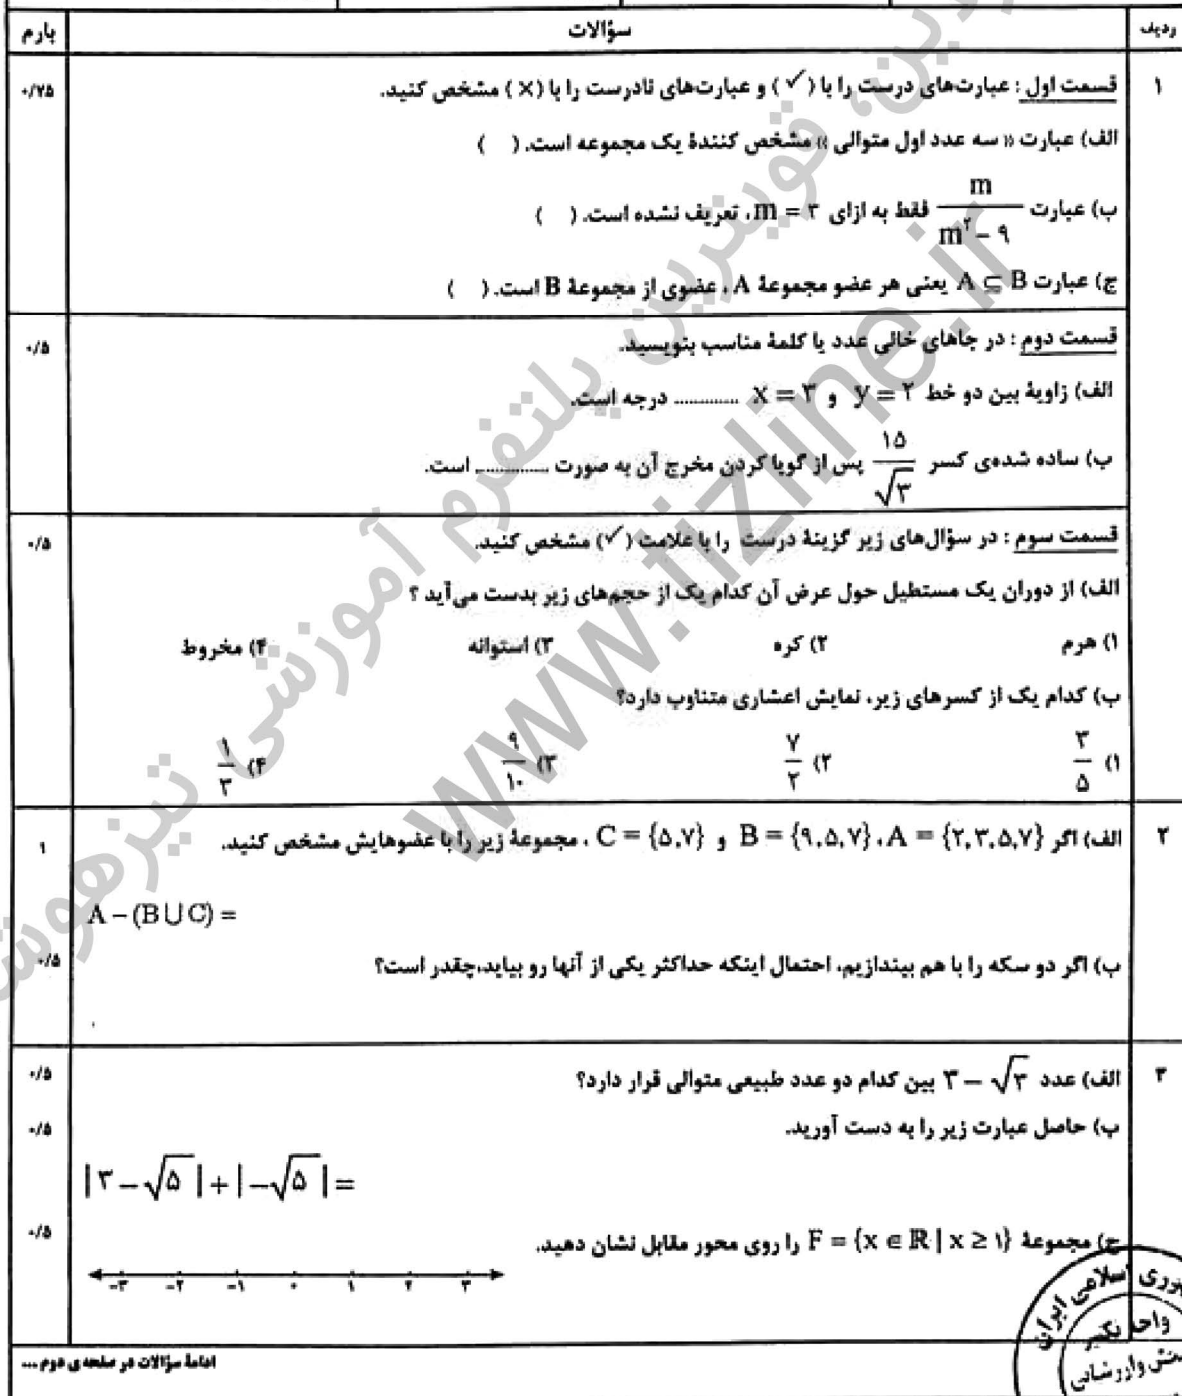 ردیف سؤالات بارم
۱ قسمت اول : عبارت‌های درست را با ( ✓ ) و عبارت‌های نادرست را با ( × ) مشخص کنید. ۰/۷۵
الف) عبارت « سه عدد اول متوالی » مشخص کنندهٔ یک مجموعه است. ( )
ب) عبارت m/(m^۲ − ۹) فقط به ازای m = ۳، تعریف نشده است. ( )
ج) عبارت A ⊆ B یعنی هر عضو مجموعهٔ A ، عضوی از مجموعهٔ B است. ( )
قسمت دوم : در جاهای خالی عدد یا کلمهٔ مناسب بنویسید. ۰/۵
الف) زاویهٔ بین دو خط y = ۲ و x = ۳ ............ درجه است.
ب) ساده شده‌ی کسر ۱۵/√۳ پس از گویا کردن مخرج آن به صورت ............ است.
قسمت سوم : در سؤال‌های زیر گزینهٔ درست را با علامت (✓) مشخص کنید. ۰/۵
الف) از دوران یک مستطیل حول عرض آن کدام یک از حجم‌های زیر بدست می‌آید ؟
۱) هرم ۲) کره ۳) استوانه ۴) مخروط
ب) کدام یک از کسرهای زیر، نمایش اعشاری متناوب دارد؟
۱) ۳/۵ ۲) ۷/۲ ۳) ۹/۱۰ ۴) ۱/۳
۲ الف) اگر A = {۲,۳,۵,۷} ، B = {۹,۵,۷} و C = {۵,۷} ، مجموعهٔ زیر را با عضوهایش مشخص کنید. ۱
A − (B ∪ C) =
ب) اگر دو سکه را با هم بیندازیم، احتمال اینکه حداکثر یکی از آنها رو بیاید،چقدر است؟ ۰/۵
۳ الف) عدد ۳ − √۳ بین کدام دو عدد طبیعی متوالی قرار دارد؟ ۰/۵
ب) حاصل عبارت زیر را به دست آورید. ۰/۵
|۳ − √۵| + |−√۵| =
ج) مجموعهٔ F = {x ∈ ℝ | x ≥ ۱} را روی محور مقابل نشان دهید. ۰/۵
−۳ −۲ −۱ ۰ ۱ ۲ ۳
ادامهٔ سؤالات در صفحه‌ی دوم ...
اسلامی ایران
واحد
www.tizline.ir
قویترین پلتفرم آموزشی